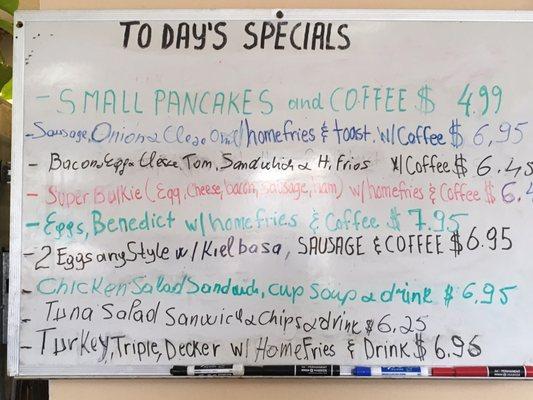 TODAY'S SPECIALS
- SMALL PANCAKES and COFFEE $ 4.99
- Sausage, Onion & Om w/homefries & toast. w/Coffee $ 6,95
- Bacon, Egg Tom, Sandwich & H. Fries Coffee $ 6.45
- Super Bulkie (Egg, Cheese, bacon, Sausage, Ham) w/ homefries & Coffee $ 6.
- Eggs, Benedict w/homefries & Coffee $ 7.95
- 2 Eggs any Style w/Kielbasa, SAUSAGE & COFFEE $ 6.95
- Chicken Salad Sandwich, cup Soup & drink $ 6,95
- Tuna Salad & Chips & drink $ 6,25
- Turkey, Triple, Decker w/ HomeFries & Drink $ 6.95